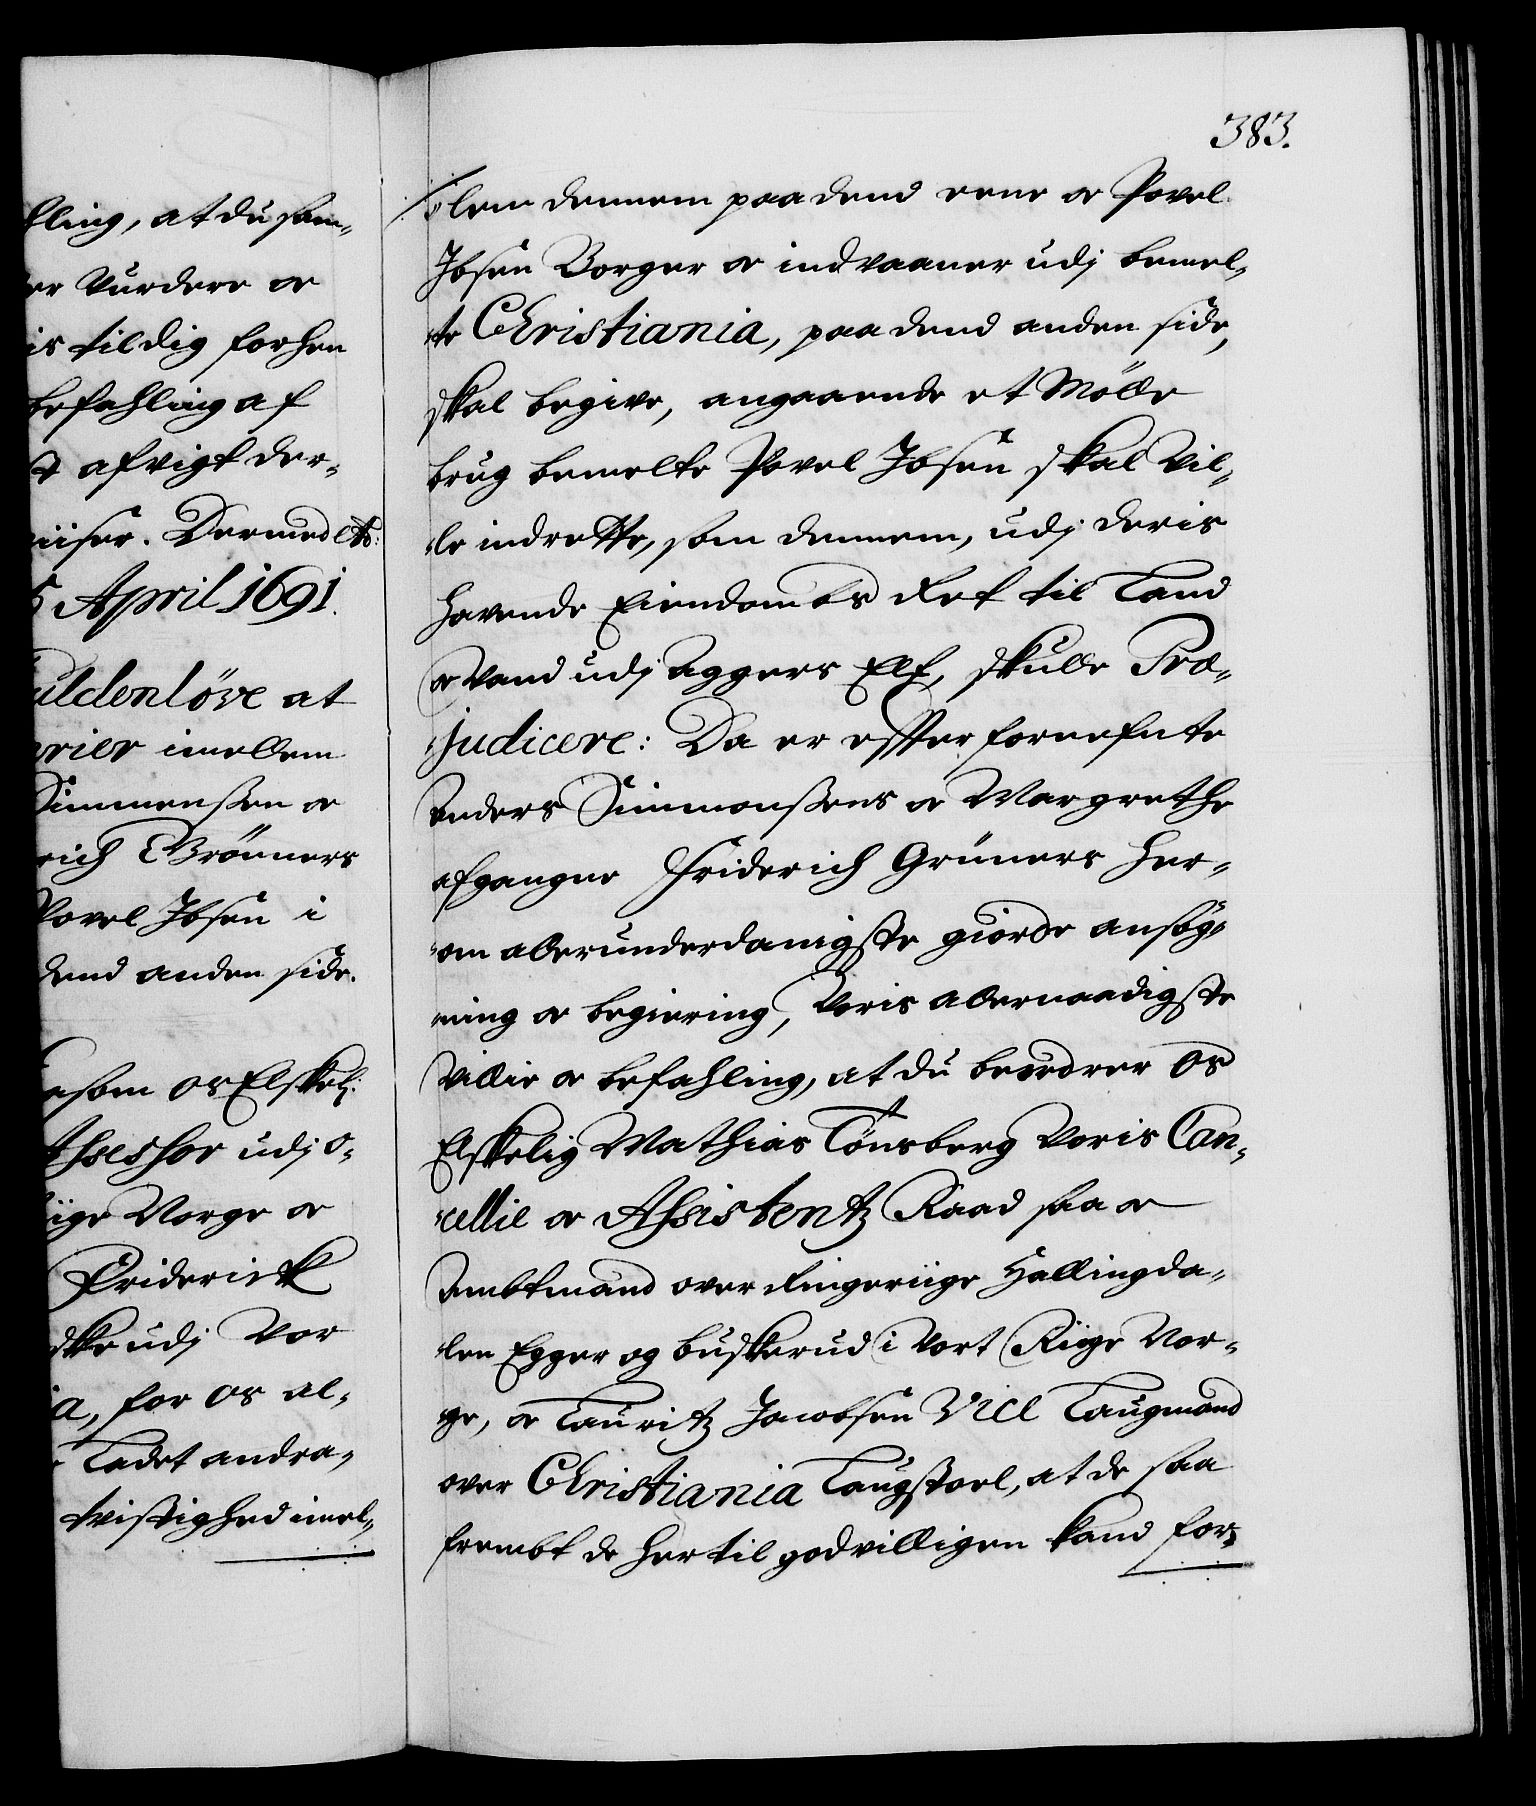 383.
ling, at du sam-
er Vurdere oc
is til dig forhen
befahling af
t afvigt der-
iiser. Dermed etc:
5 April 1691.
uldenlöve at
rier imellem
Simmenßen oc
rich Brönners
Povel Ibsen i
dend anden side.
esom os Elskel:
Assessor udj o-
iige Norge oc
Friderich
ske udj Vor
ia, for os al-
Ladet andra-
tvistighed imel-
lem dennem paa dend eene oc Povel
Ibsen Borger oc indvaaner udj bemel-
te Christiania, paa dend anden side,
skal begive, angaaende et Mölle
brug bemelte Povel Ibsen skal Vil-
le indrette, som dennem, udj deris
havende Eiendombs Ret til Land
oc Vand udj Aggers Elf, skulle Præ-
judicere: Da er efter fornefnte
Anders Simmonßens oc Margrethe
afgangne Friderich Grüners her-
om allerunderdanigste giorde ansög-
ning oc begiering, Voris allernaadigste
Villie oc befahling, at du beordrer Os
Elskelig Mathias Tönsberg Voris Can-
cellie oc Assistentz Raad saa oc
Ambtmand over Ringeriige Hallingda-
len Egger og buskerud i Vort Riige Nor-
ge, oc Lauritz Jacobsen Vice Laugmand
over Christiania Laugstoel, at de saa
frembt de hertil godvilligen kand for-